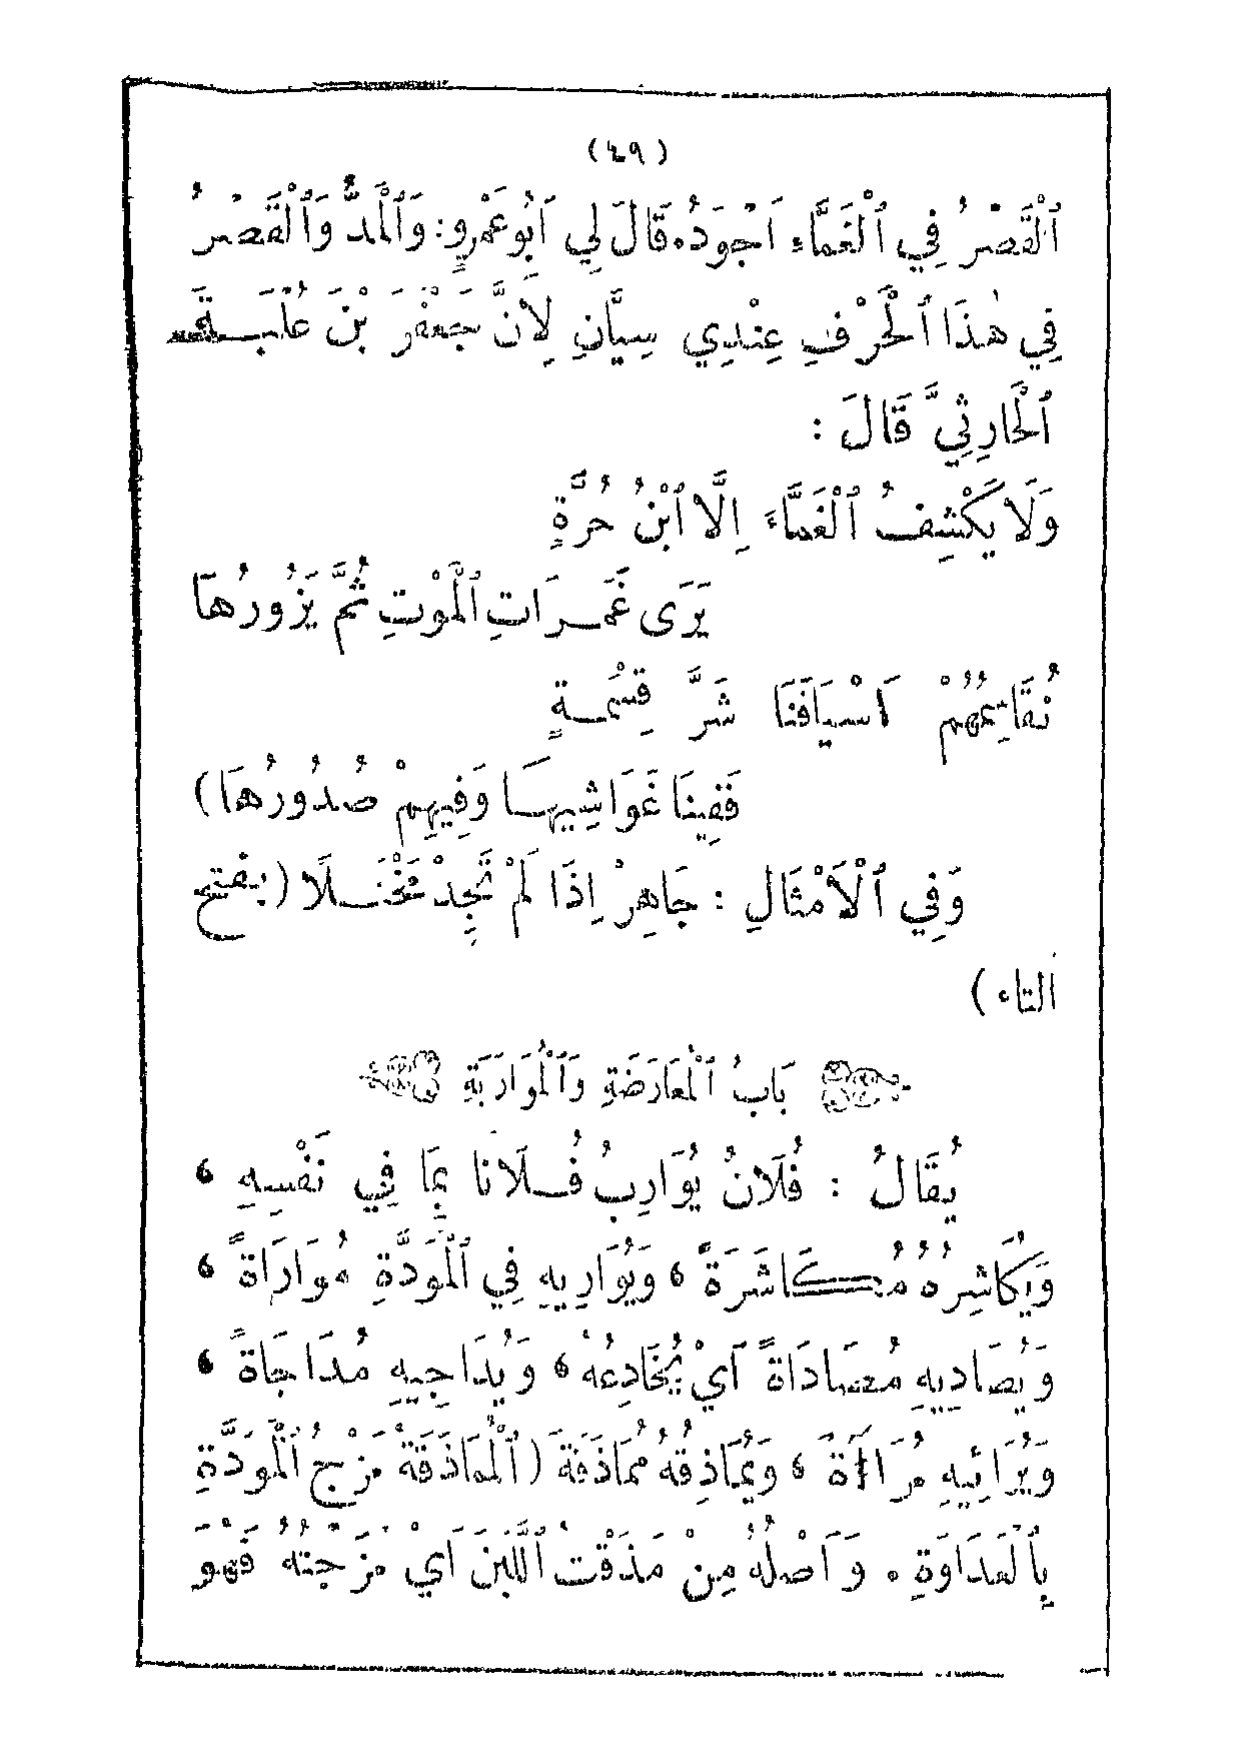 (٤٩)
ٱلْقَصْرُ فِي ٱلْغَمَّاءِ اَجْوَدُ. قَالَ لِي اَبُو عَمْرٍو: وَٱلْمَدُّ وَٱلْقَصْرُ
فِي هٰذَا ٱلْحَرْفِ عِنْدِي سِيَّانِ لِاَنَّ جَعْفَرَ بْنَ عُلْبَةَ
ٱلْحَارِثِيَّ قَالَ :
وَلَا يَكْشِفُ ٱلْغَمَّاءَ اِلَّا ٱبْنُ حُرَّةٍ
يَرَى غَمَرَاتِ ٱلْمَوْتِ ثُمَّ يَزُورُهَا
نُقَاسِمُهُمْ اَسْيَافَنَا شَرَّ قِسْمَةٍ
فَفِينَا غَوَاشِيهَا وَفِيهِمْ صُدُورُهَا)
وَفِي ٱلْاَمْثَالِ : جَاهِرْ اِذَا لَمْ تَجِدْ مَخْتَلًا (بفتح
التاء)
بَابُ ٱلْمُعَارَضَةِ وَٱلْمُوَارَبَةِ
يُقَالُ : فُلَانٌ يُوَارِبُ فُلَانًا بِمَا فِي نَفْسِهِ ،
وَيُكَاشِرُهُ مُكَاشَرَةً ، وَيُوَارِيهِ فِي ٱلْمَوَدَّةِ مُوَارَاةً ،
وَيُصَادِيهِ مُصَادَاةً اَيْ يُخَادِعُهُ ، وَيُدَاجِيهِ مُدَاجَاةً ،
وَيُرَائِيهِ مُرَاآةً ، وَيُمَاذِقُهُ مُمَاذَقَةً (ٱلْمُمَاذَقَةُ مَزْجُ ٱلْمَوَدَّةِ
بِٱلْعَدَاوَةِ . وَاَصْلُهُ مِنْ مَذَقْتُ ٱللَّبَنَ اَيْ مَزَجْتُهُ فَهْوَ